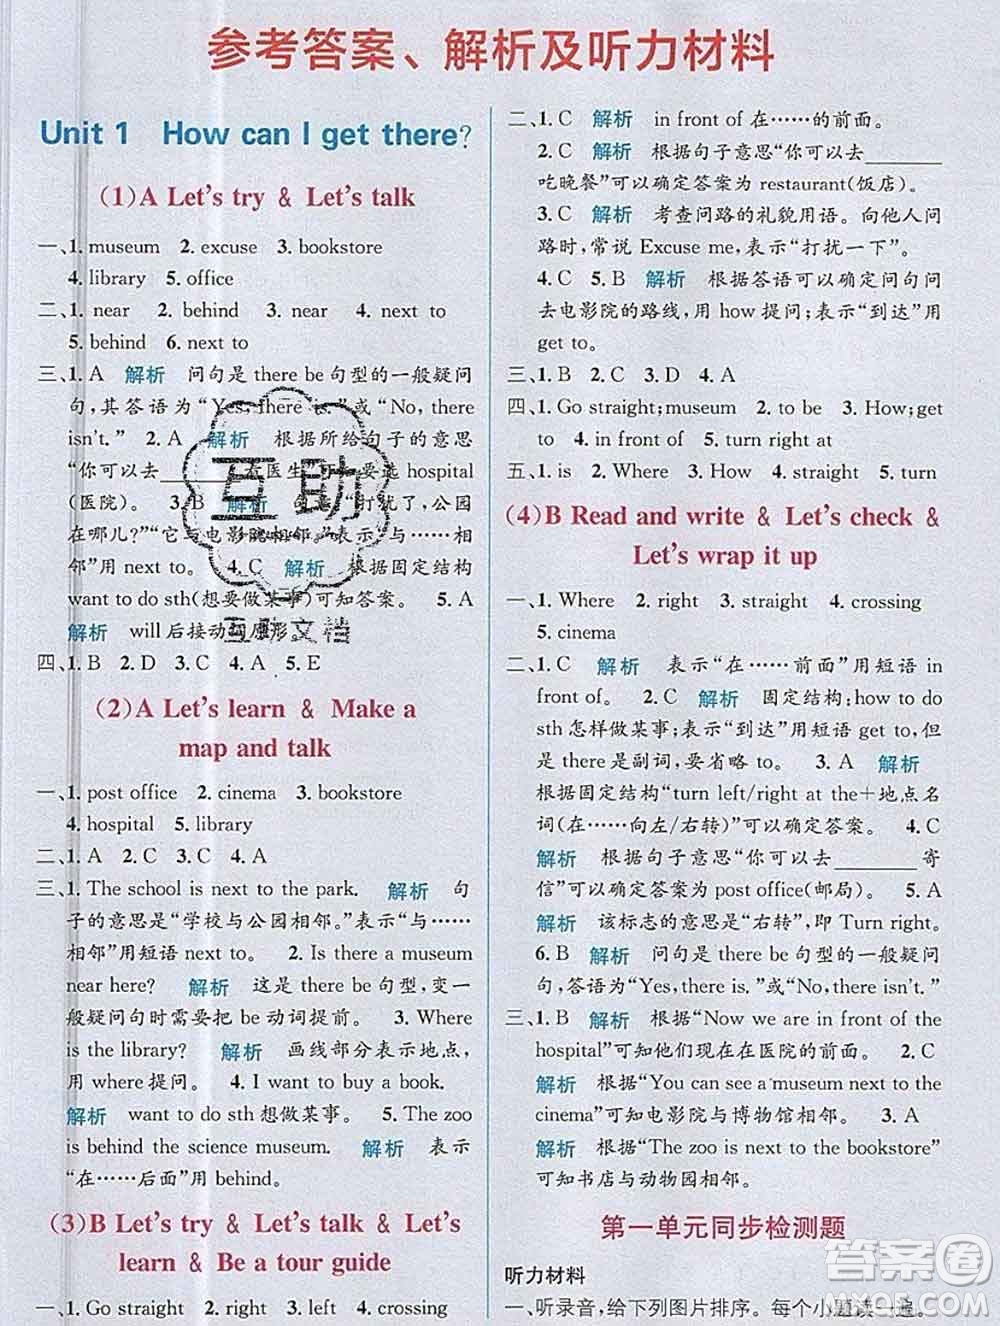 参考答案、解析及听力材料
Unit 1 How can I get there?
(1)A Let's try & Let's talk
一、1. museum 2. excuse 3. bookstore
4. library 5. office
二、1. near 2. behind 3. near 4. next to
5. behind 6. next to
三、1. A 解析 问句是 there be 句型的一般疑问
句,其答语为“Yes, there is.”或“No, there
isn't.” 2. A 解析 根据所给句子的意思
“你可以去______看医生”可知要选 hospital
(医院)。 3. B 解析 “打扰了,公园
在哪儿?”“它与电影院相邻。”表示“与……相
邻”用 next to。 4. C 解析 根据固定结构
want to do sth(想要做某事)可知答案。 5. A
解析 will 后接动词原形。
四、1. B 2. D 3. C 4. A 5. E
(2)A Let's learn & Make a
map and talk
一、1. post office 2. cinema 3. bookstore
4. hospital 5. library
二、1. A 2. C 3. C 4. A
三、1. The school is next to the park. 解析 句
子的意思是“学校与公园相邻。”表示“与……
相邻”用短语 next to。 2. Is there a museum
near here? 解析 这是 there be 句型,变一
般疑问句时需要把 be 动词提前。 3. Where
is the library? 解析 画线部分表示地点,
用 where 提问。 4. I want to buy a book.
解析 want to do sth 想做某事。 5. The zoo
is behind the science museum. 解析 表示
“在……后面”用 behind。
(3)B Let's try & Let's talk & Let's
learn & Be a tour guide
一、1. Go straight 2. right 3. left 4. crossing
二、1. C 解析 in front of 在……的前面。
2. C 解析 根据句子意思“你可以去______
吃晚餐”可以确定答案为 restaurant(饭店)。
3. C 解析 考查问路的礼貌用语。向他人问
路时,常说 Excuse me,表示“打扰一下”。
4. C 5. B 解析 根据答语可以确定问句问
去电影院的路线,用 how 提问;表示“到达”用
get to。
三、1. B 2. C 3. D 4. A
四、1. Go straight;museum 2. to be 3. How;get
to 4. in front of 5. turn right at
五、1. is 2. Where 3. How 4. straight 5. turn
(4)B Read and write & Let's check &
Let's wrap it up
一、1. Where 2. right 3. straight 4. crossing
5. cinema
二、1. C 解析 表示“在……前面”用短语 in
front of。 2. C 解析 固定结构:how to do
sth 怎样做某事;表示“到达”用短语 get to,但
是 there 是副词,要省略 to。 3. A 解析
根据固定结构“turn left/right at the+地点名
词(在……向左/右转)”可以确定答案。 4. C
解析 根据句子意思“你可以去______寄
信”可以确定答案为 post office(邮局)。 5. A
解析 该标志的意思是“右转”,即 Turn right。
6. B 解析 问句是 there be 句型的一般疑问
句,答语为“Yes, there is.”或“No, there isn't.”
三、1. B 解析 根据“Now we are in front of the
hospital”可知他们现在在医院的前面。 2. C
解析 根据“You can see a museum next to the
cinema”可知电影院与博物馆相邻。 3. A
解析 根据“The zoo is next to the bookstore”
可知书店与动物园相邻。
第一单元同步检测题
听力材料
一、听录音,给下列图片排序。每个小题读一遍。
互助
互助文档
答案圈